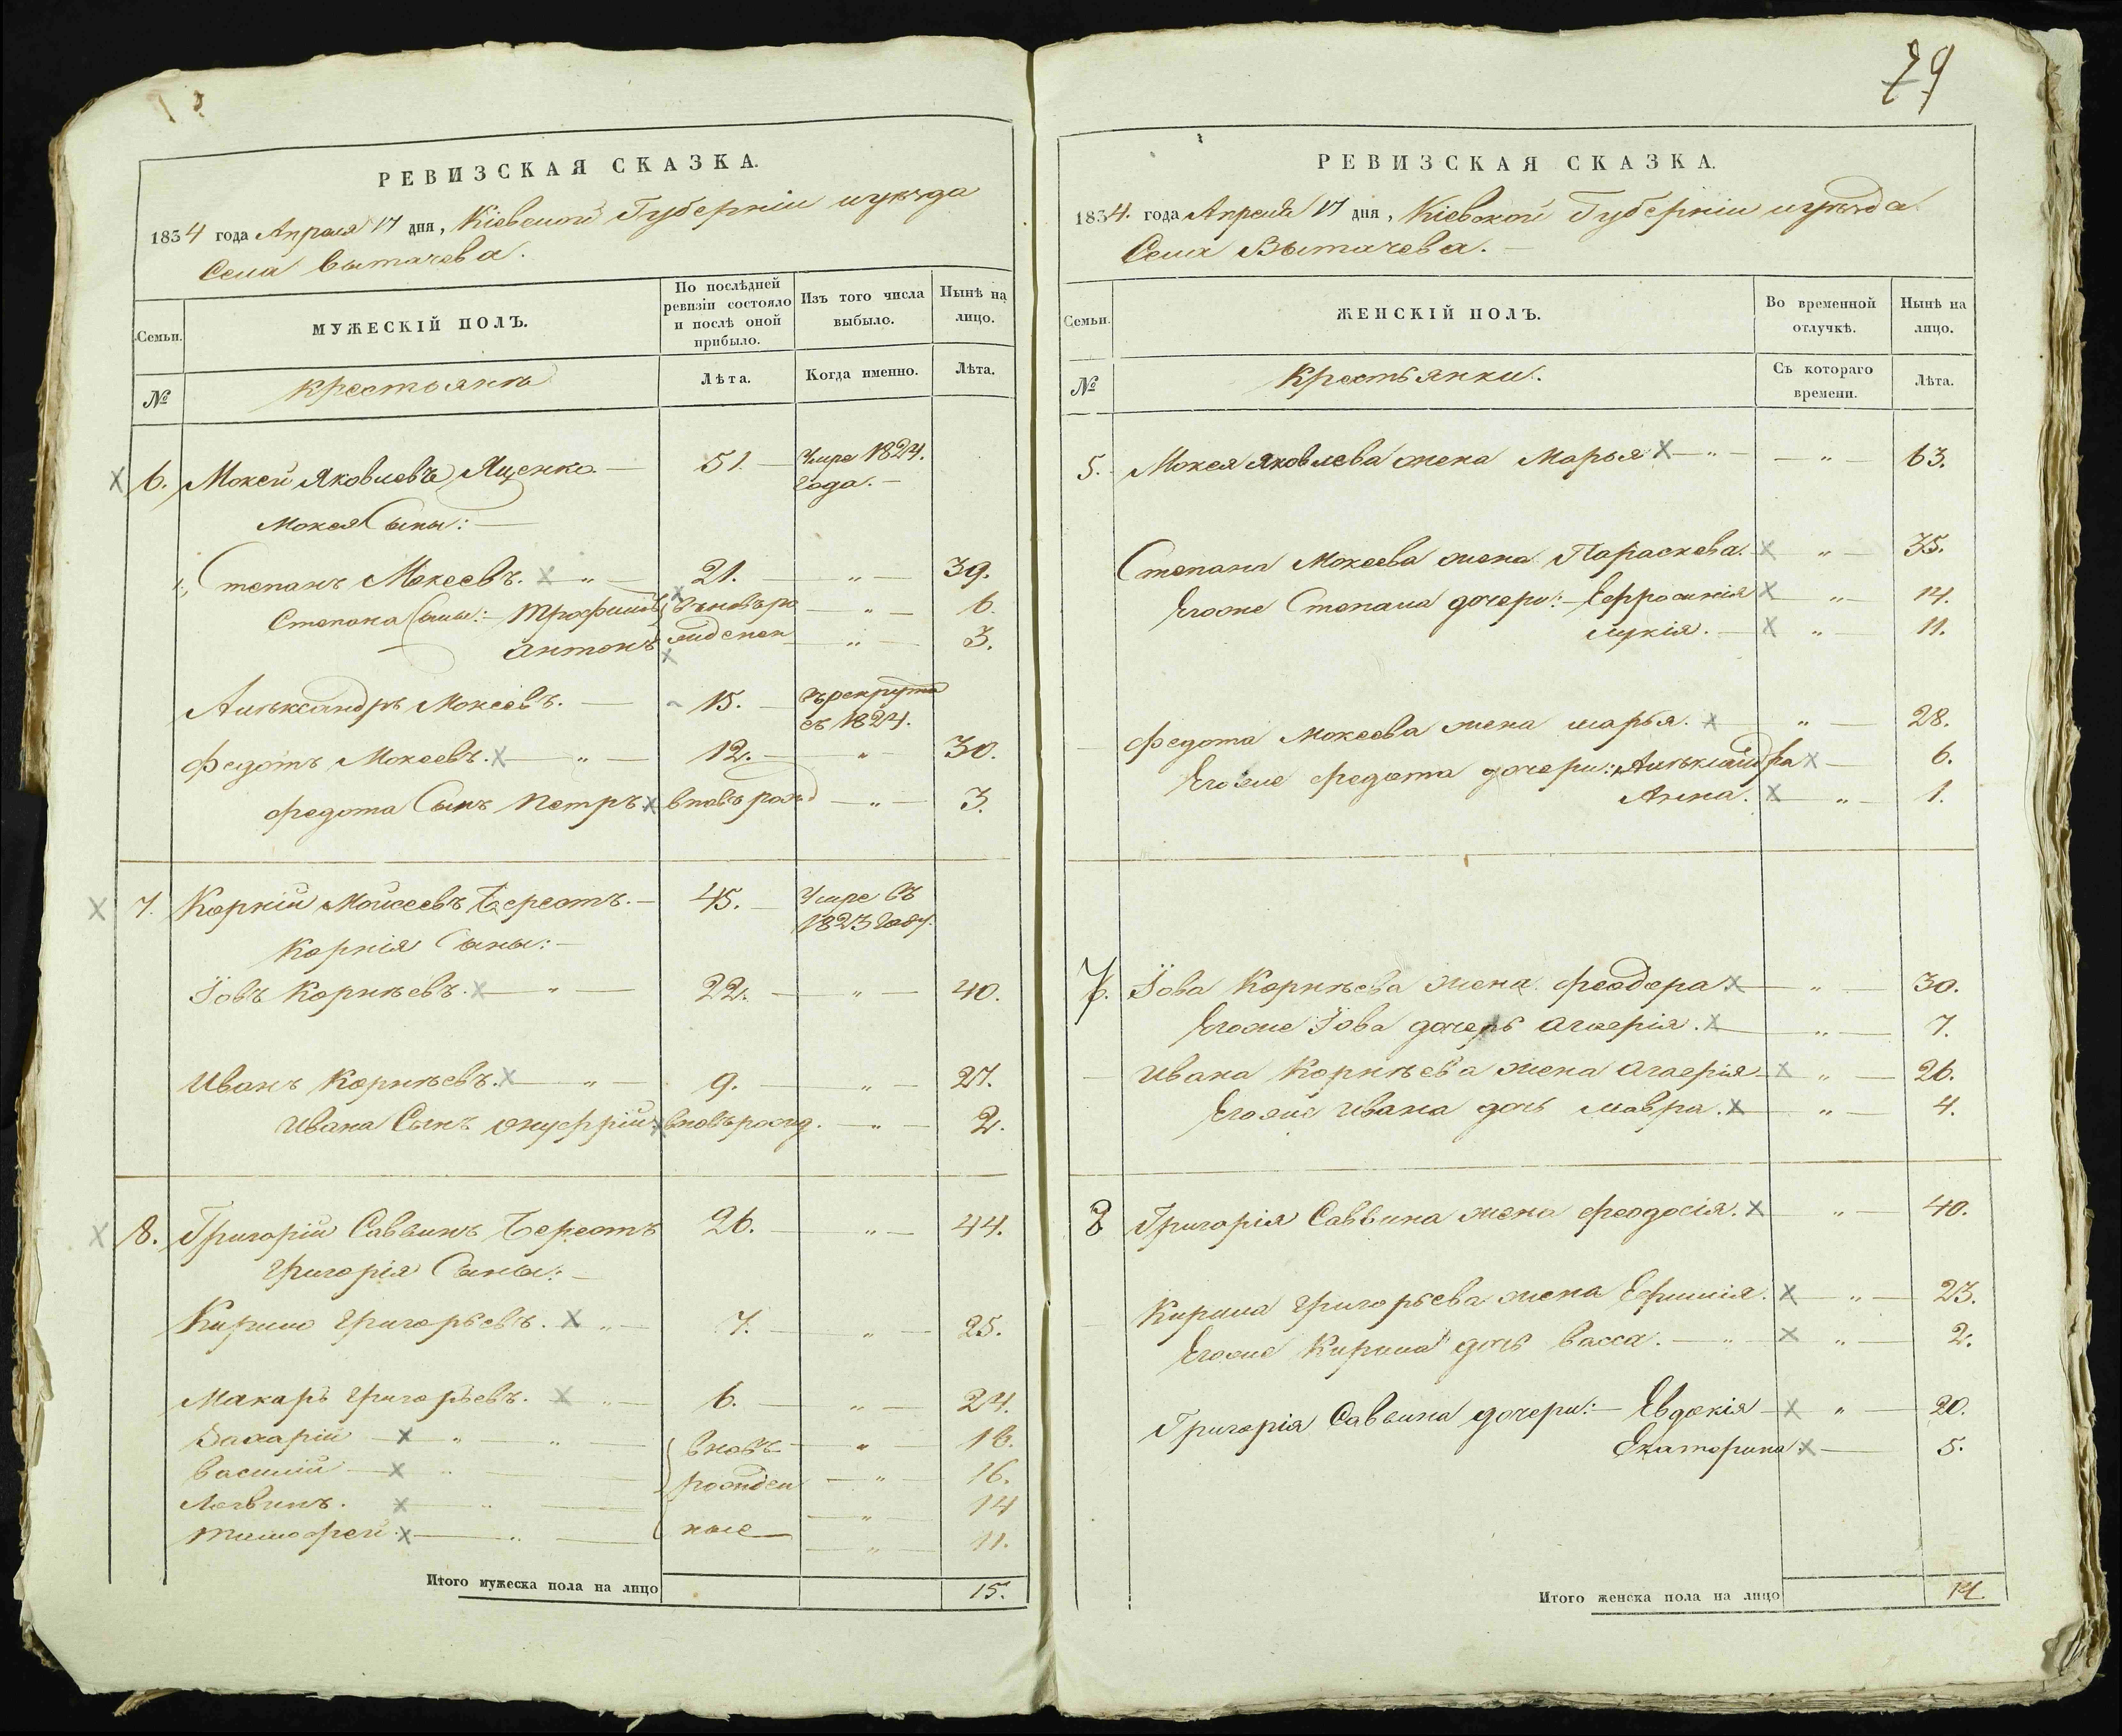 79
РЕВИЗСКАЯ СКАЗКА.
1834 года Апреля 17 дня, Кіевской Губерніи и уѣзда
Села Вытачева.
Семьи.
МУЖЕСКІЙ ПОЛЪ.
По послѣдней ревизіи состояло и послѣ оной прибыло.
Изъ того числа выбыло.
Нынѣ на лицо.
№
крестьяне
Лѣта.
Когда именно.
Лѣта.
6. Мокей Яковлевъ Яценко — 51. — Умре 1824. года. —
Мокея Сыны: —
1., Степанъ Мокеевъ. х — „ — 21. — „ — 39.
Степана Сыны: — Трофимъ х вновь ро — „ — 6.
Антонъ х жденен — „ — 3.
Алѣксандръ Мокеевъ. — 15. — въ рекрута съ 1824.
Федотъ Мокеевъ. х — „ — 12. — „ — 30.
Федота Сынъ Петръ. х вновь рожд — „ — 3.
7. Корнѣй Мойсеевъ Берестъ. — 45. — Умре въ 1823 году.
Корнія Сыны: —
Іовъ Корнѣевъ. х — „ — 22. — „ — 40.
Иванъ Корнѣевъ. х — „ — 9. — „ — 27.
Ивана Сынъ Онуфрій х вновь рожд. — „ — 2.
8. Григорій Саввинъ Берестъ 26. — „ — 44.
Григорія Сыны: —
Кирило Григорьевъ. х „ — 7. — „ — 25.
Макаръ Григорьевъ. х „ — 6. — „ — 24.
Захарій — х — „ — „ — вновь — „ — 18.
Василій — х „ — рожден — „ — 16.
Логвинъ. х — „ — „ — 14
Тимофей. х — „ — ные — „ — 11.
Итого мужеска пола на лицо 15.
РЕВИЗСКАЯ СКАЗКА.
1834. года Апреля 17 дня, Кіевской Губерніи и уѣзда
Села Вытачева. —
Семьи.
ЖЕНСКІЙ ПОЛЪ.
Во временной отлучкѣ.
Нынѣ на лицо.
№
Крестьянки.
Съ котораго времени.
Лѣта.
5. Мокея Яковлева жена Марья х — „ — „ — 63.
Степана Мокеева жена Параскева. х „ — 35.
Егоже Степана дочери: — Ефросинія х „ — 14.
Лукія. — х „ — 11.
Федота Мокеева жена Марья. х — „ — 28.
Егоже Федота дочери: Алѣксандра х — 6.
Анна. х — „ — 1.
7. Іова Корнѣева жена Феодора х — „ — 30.
Егоже Іова дочерь Агаерія. х — „ — 7.
Ивана Корнѣева жена Агаерія — х „ — 26.
Егоже Ивана дочь Мавра. х — „ — 4.
8 Григорія Саввина жена Феодосія. х „ — 40.
Кирила Григорьева жена Ефимія. х — „ — 23.
Егоже Кирила дочь Васса. — „ — х „ — 2.
Григорія Саввина дочери: — Евдокія — х „ — 20.
Екатерина х — 5.
Итого женска пола на лицо 14.